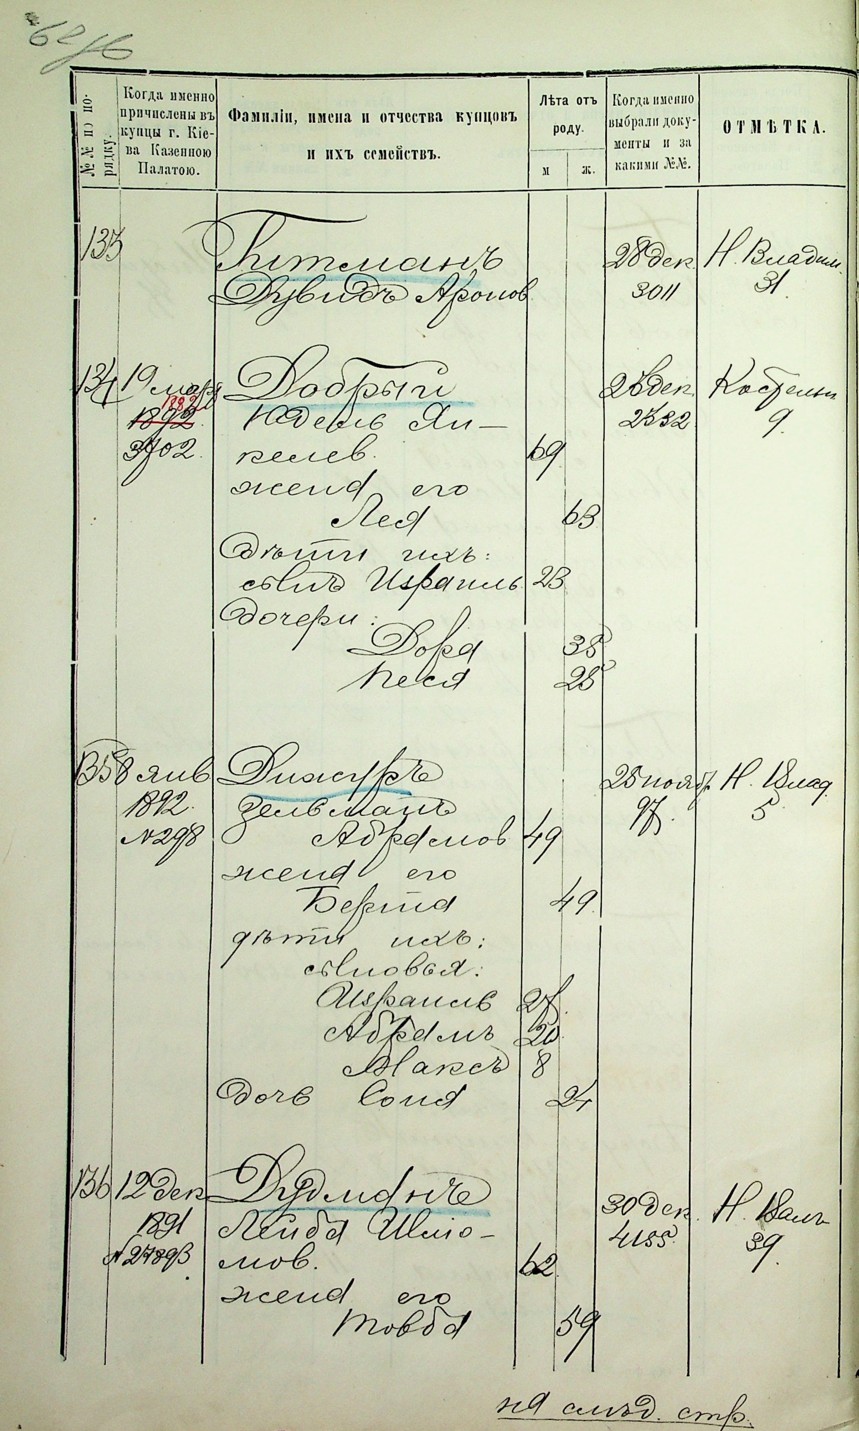 №№ по порядку.
Когда именно причислены въ купцы г. Кіева Казенною Палатою.
Фамиліи, имена и отчества купцовъ и ихъ семействъ.
Лѣта отъ роду.
м
ж.
Когда именно выбрали документы и за какими №№.
ОТМѢТКА.
133 Гитманъ 28 дек. Н. Владим.
Дувидъ Аронов 3011 31
134 19 мар Добрый 28 дек. Костельн
1892 1882 Юдель Ян- 2532 9.
3702. келев. 69
жена его
Лея 63
Дѣти ихъ:
сынъ Израиль 23
дочери:
Дора 35
Песя 25
135 8 янв Дижуръ 25 ноябр Н. Влад.
1892. Зельманъ 97. 5
№ 298 Абрамов 49
жена его
Берта 49.
дѣти ихъ:
сыновья:
Израиль 27.
Абрамъ 20
Максъ 8
Дочь Соня 24
136 12 Дек Дудманъ 30 дек. Н. Валъ
1891 Лейба Шлио- 4155. 39.
№ 27893 мов. 62.
жена его
Товба 59
на слѣд. стр.